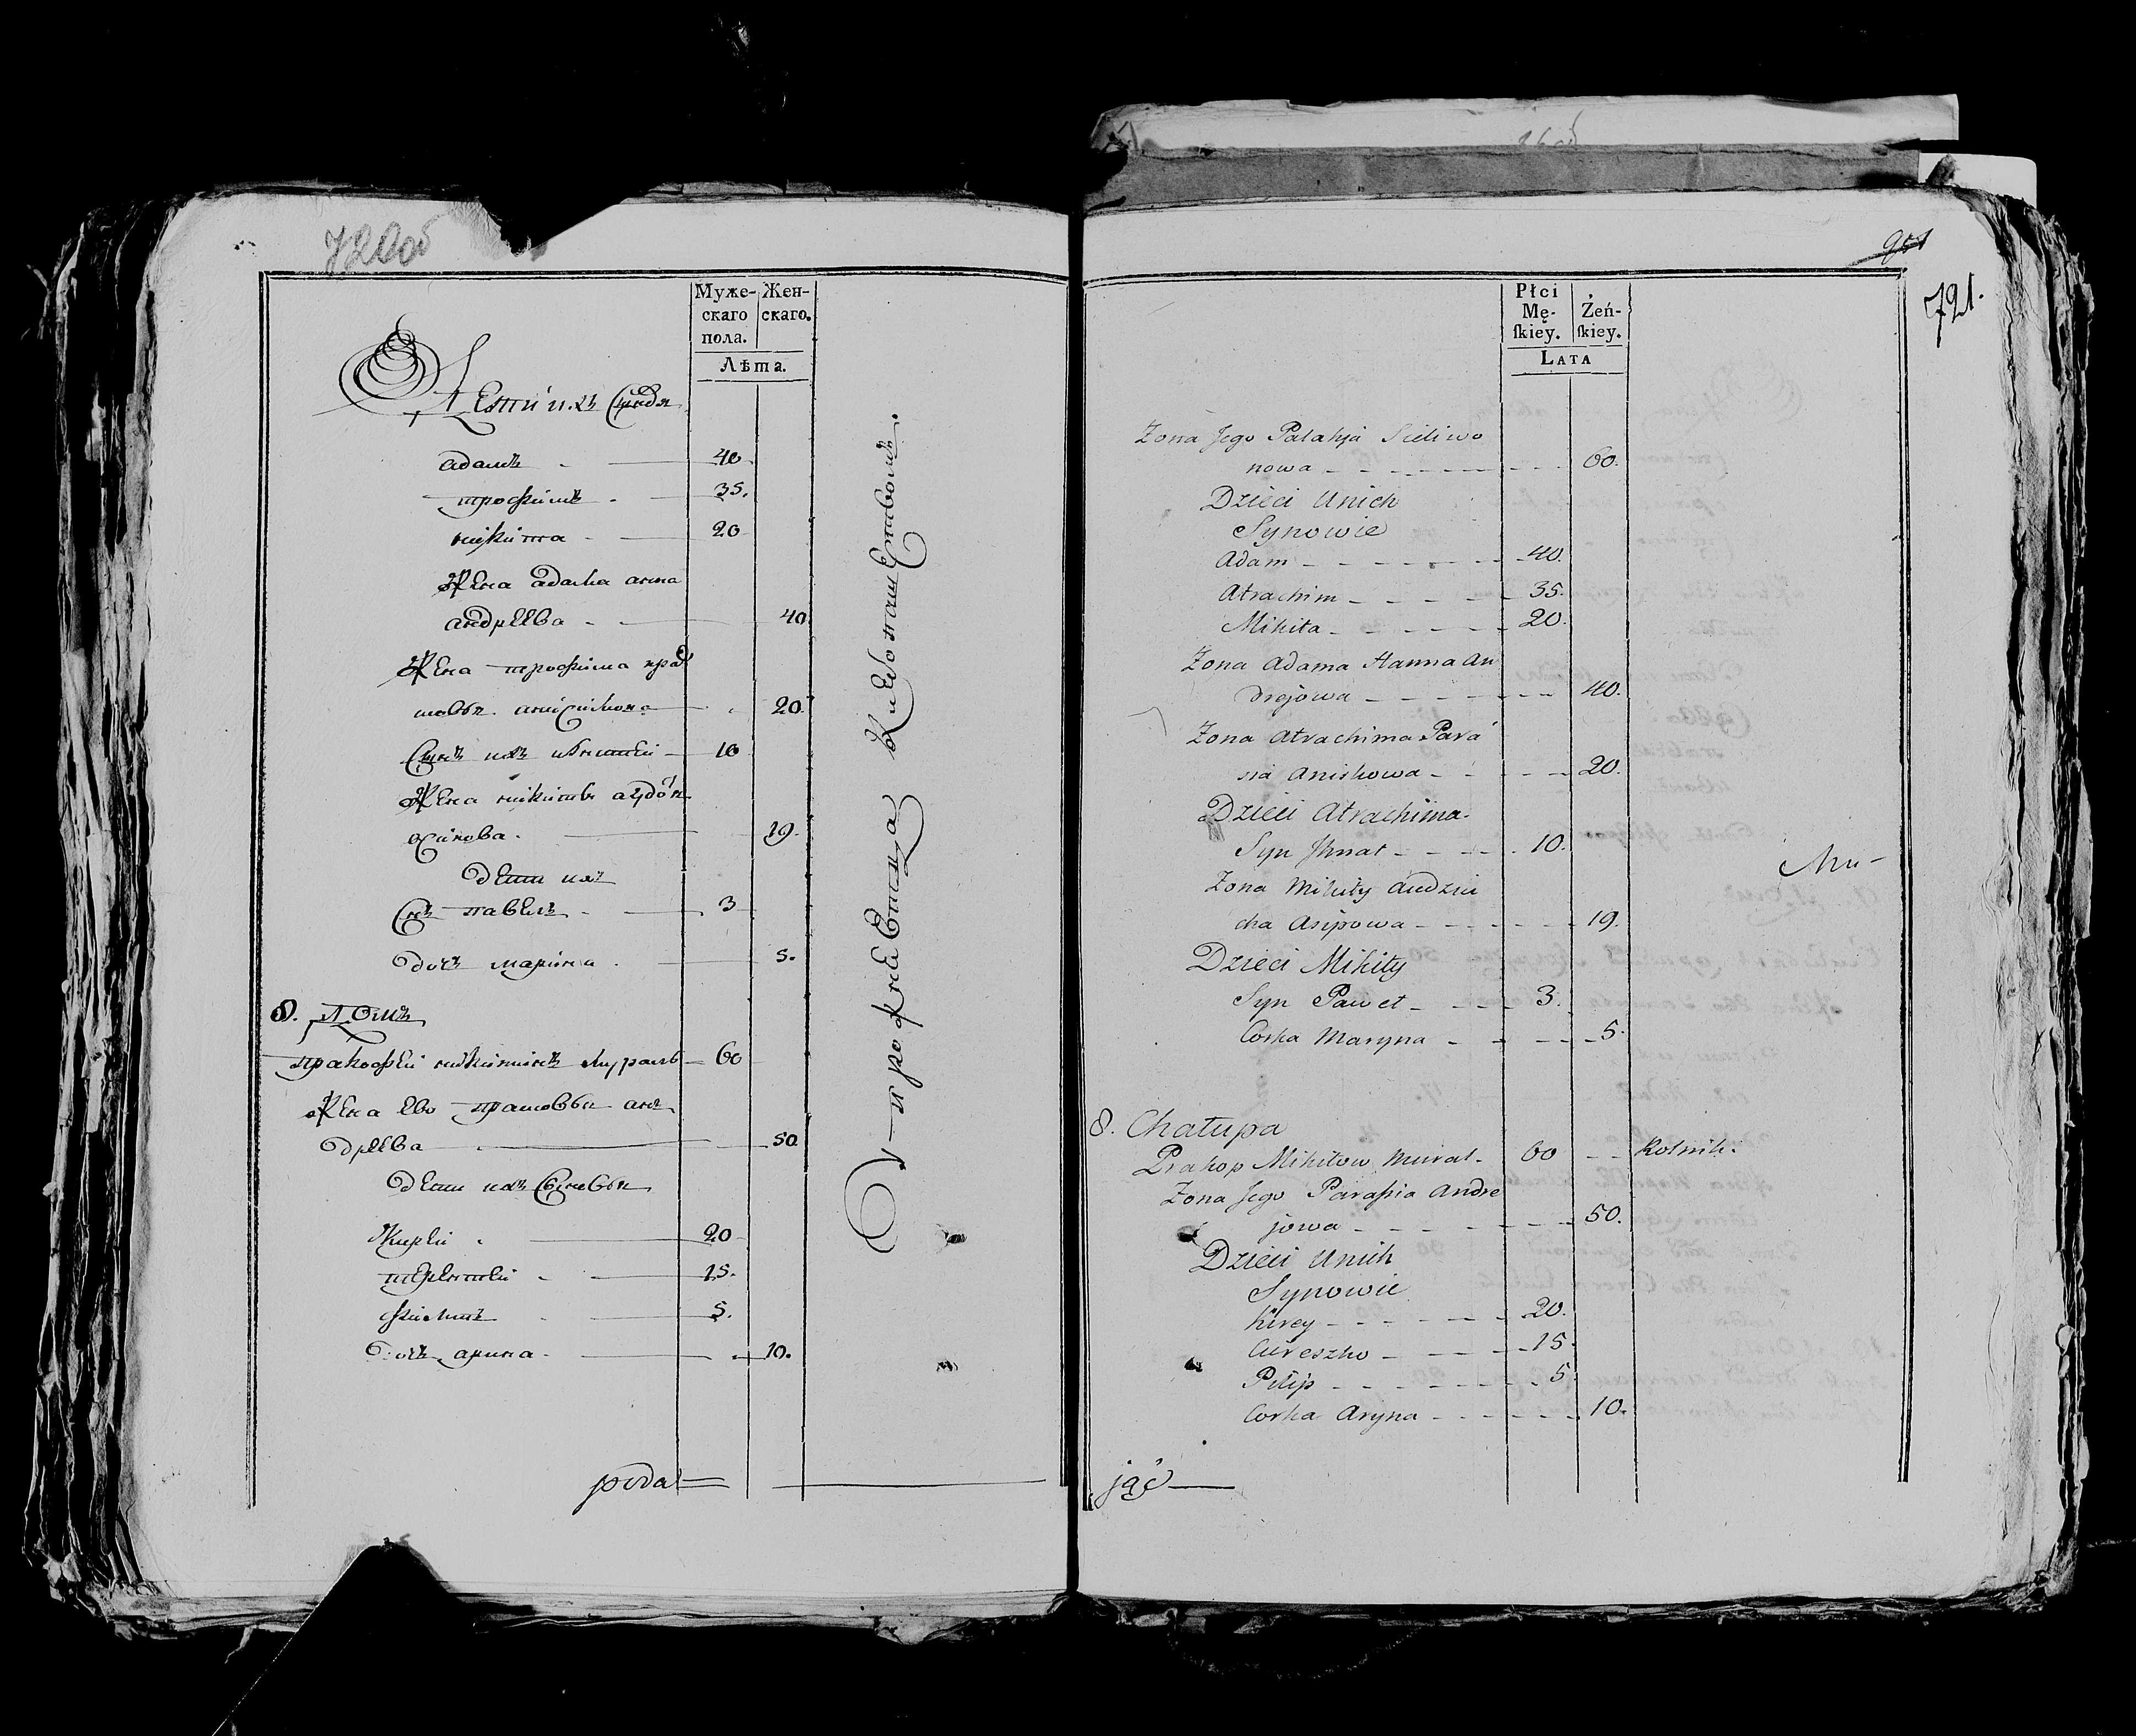 720об
Муже-
скаго
пола.
Жен-
скаго.
Лѣта.
Дети ихъ
адамъ 40
трофимъ 35.
никита 20
Жена адама анна
андреева 40
Жена трофима пра
сковья 20.
Сынъ ихъ 10
Жена никиты авдотя
19.
дети ихъ
Снъ павелъ 3
дочъ марина 5.
8. Домъ
пракофеи никитинъ мураль 60
Жена ево прасковья ан
дреева 50
дети ихъ Сыновья
Кирѣи 20
терентеи 15.
филипъ 5.
дочъ арина 10.
podal
951
721.
Płci
Mę-
ſkiey.
Żeń-
ſkiey.
LATA
Zona Jego Palahja Sieliwo
nowa 60.
Dzieci Unich
Synowie
Adam 40.
Atrachim 35.
Mikita 20.
Zona Adama Hanna An
drejowa 40.
Zona Atrachima Para
sia Aniskowa 20.
Dzieci Atrachima
Syn Ihnat 10.
Zona Mikity Audziu
cha Asipowa 19.
Dzieci Mikity
Syn Paweł 3.
Corka Maryna 5.
Mu-
8. Chałupa
Prakop Mikitow Mural 60 Rolnik.
Zona Jego Parasia Andre
jowa 50.
Dzieci Unich
Synowie
Kirey 20.
Cureszko 15.
Pilip 5
Corka Aryna 10.
jąć